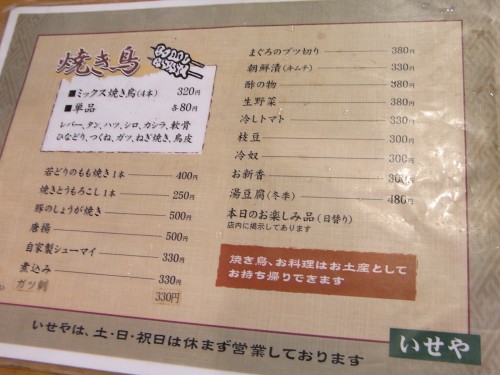 焼き鳥
■ミックス焼き鳥(4本) 320円
■単品 各80円
レバー、タン、ハツ、シロ、カシラ、軟骨
ひなどり、つくね、ガツ、ねぎ焼き、鳥皮
若どりのもも焼き1本 400円
焼きとうもろこし1本 250円
豚のしょうが焼き 500円
唐揚 500円
自家製シューマイ 330円
煮込み 330円
ガツ刺 330円
まぐろのブツ切り 380円
朝鮮漬(キムチ) 330円
酢の物 380円
生野菜 380円
冷しトマト 330円
枝豆 300円
冷奴 300円
お新香 300円
湯豆腐(冬季) 480円
本日のお楽しみ品(日替り)
店内に掲示してあります
焼き鳥、お料理はお土産として
お持ち帰りできます
いせやは、土・日・祝日は休まず営業しております
いせや